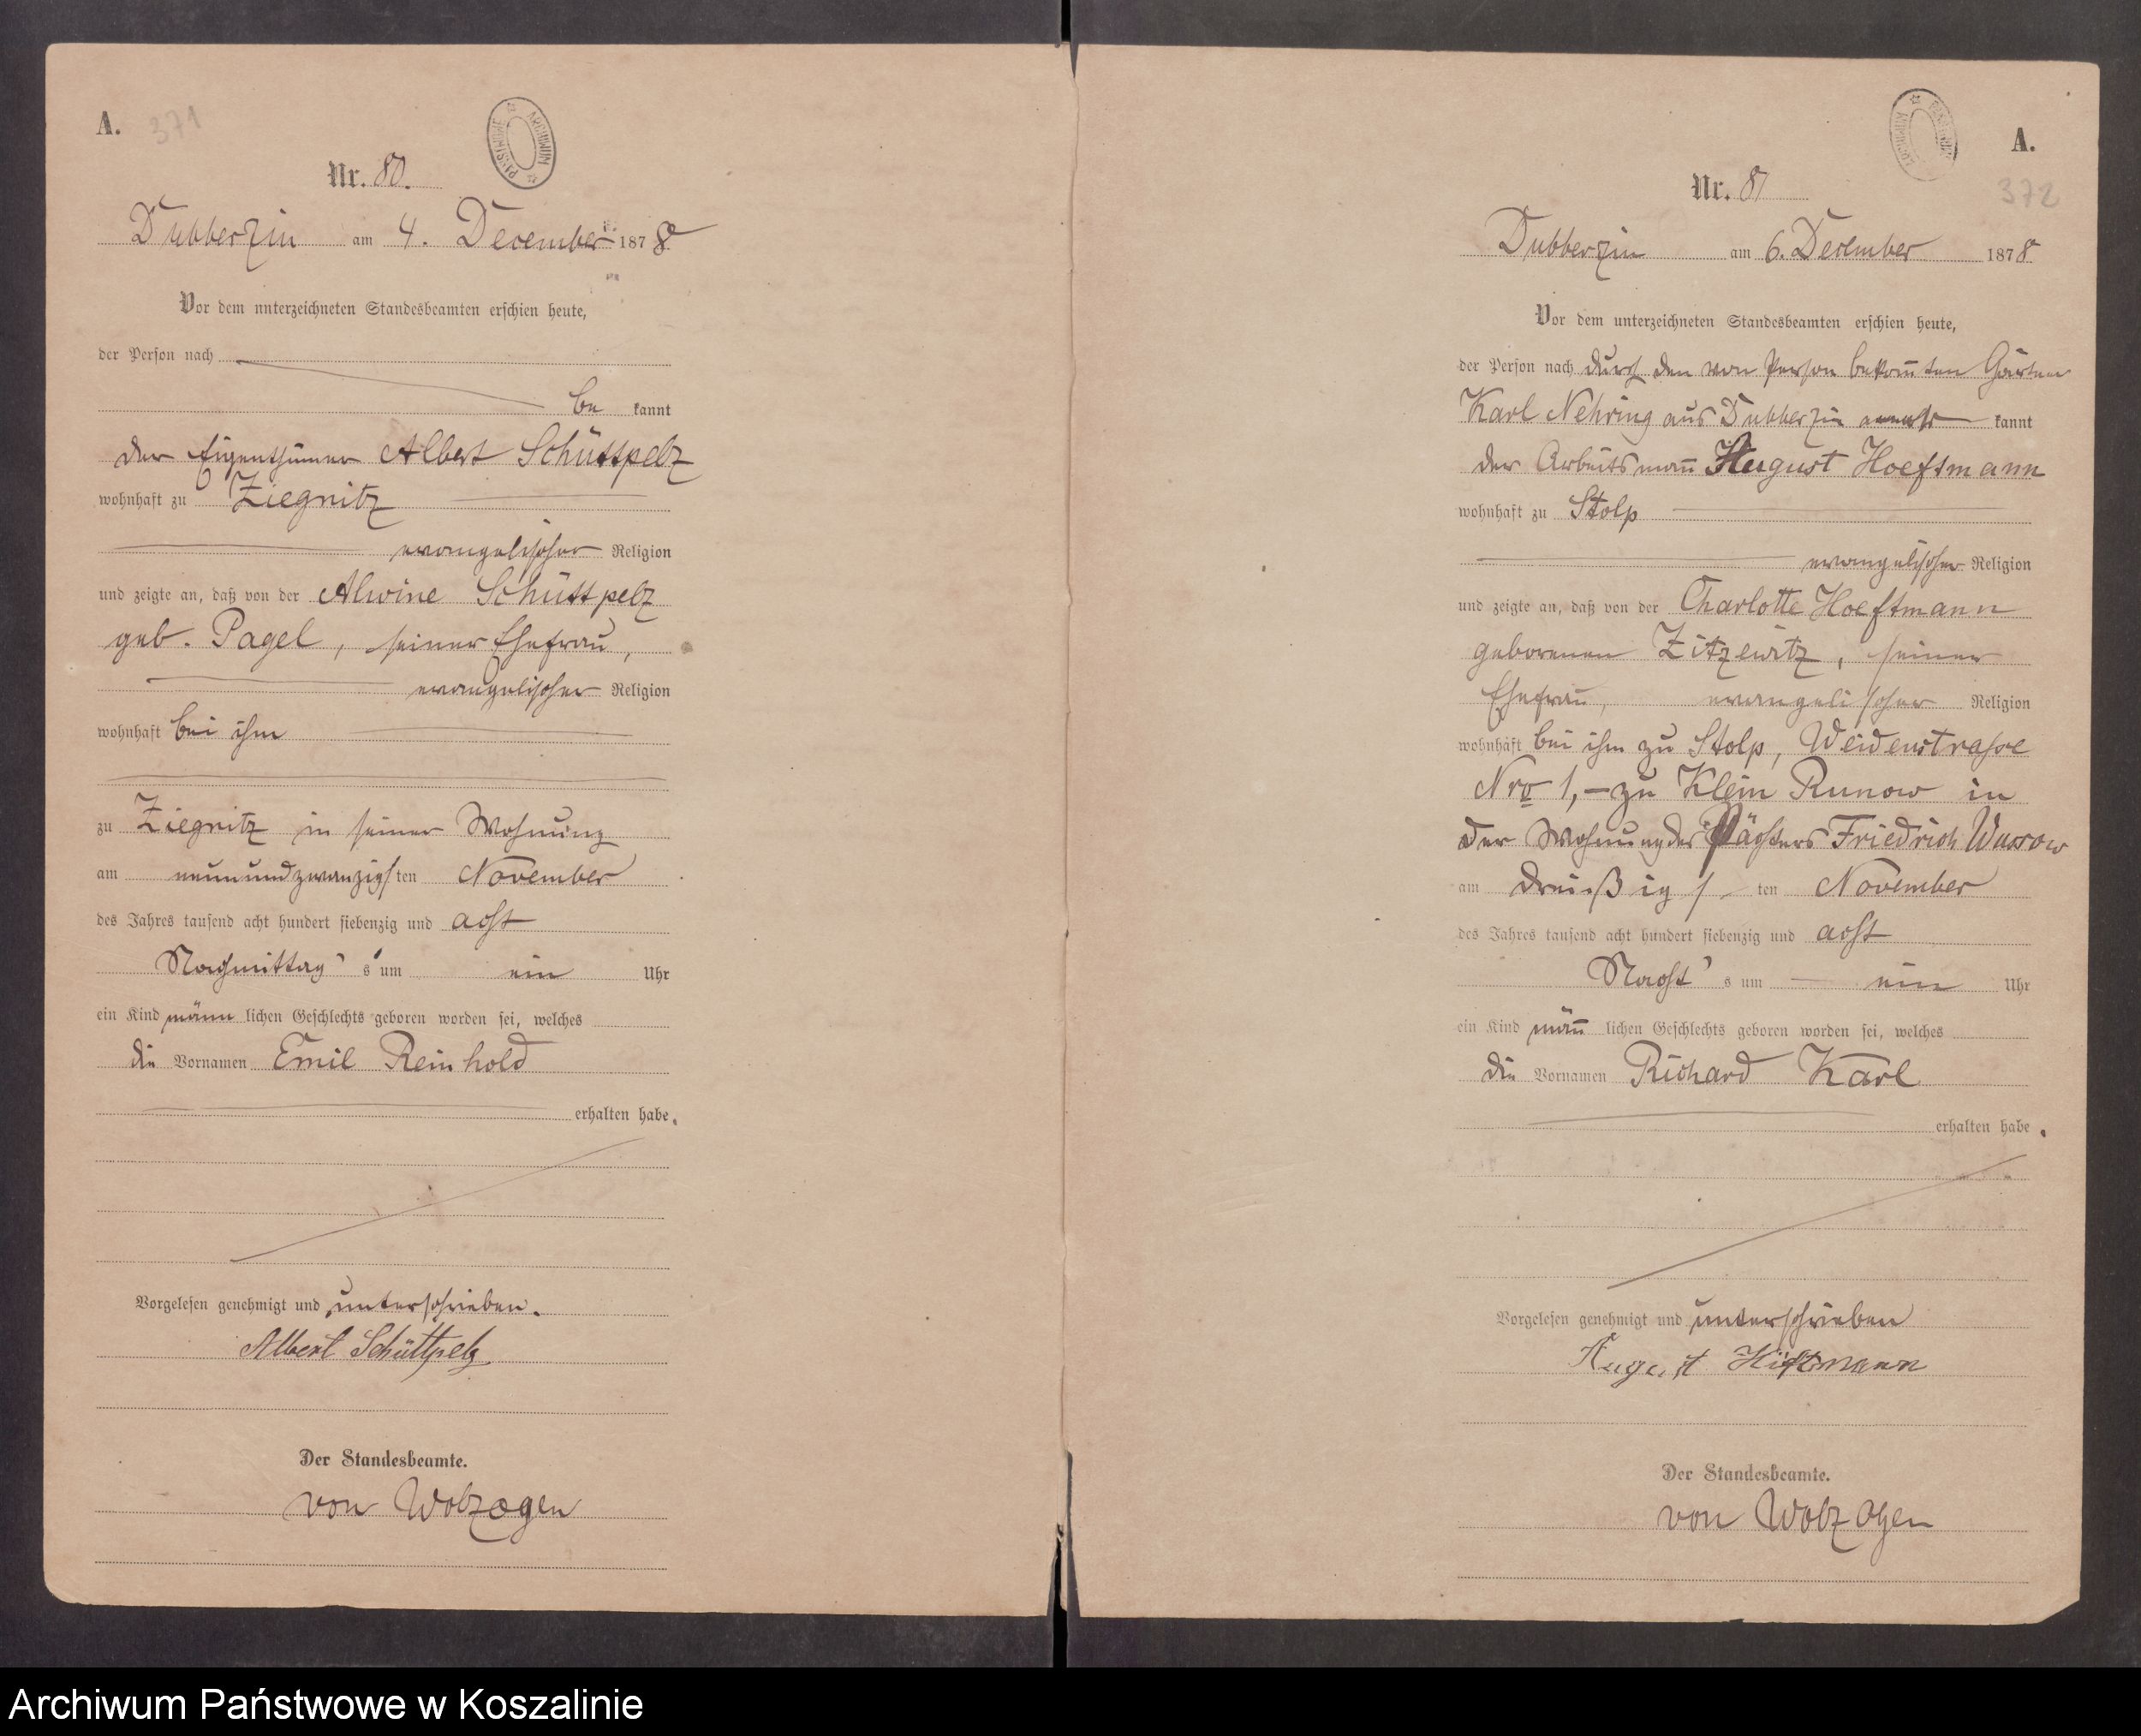 A. 371
ARCHIWUM PAŃSTWOWE
Nr. 80.
Dubberzin am 4. December 1878
Vor dem unterzeichneten Standesbeamten erschien heute,
der Person nach
be kannt
der Eigenthümer Albert Schüttpelz
wohnhaft zu Ziegnitz
evangelischer Religion
und zeigte an, daß von der Alwine Schüttpelz
geb. Pagel, seiner Ehefrau,
evangelischer Religion
wohnhaft bei ihm
zu Ziegnitz in seiner Wohnung
am neunundzwanzigsten November
des Jahres tausend acht hundert siebenzig und acht
Nachmittag's um ein Uhr
ein Kind männlichen Geschlechts geboren worden sei, welches
die Vornamen Emil Reinhold
erhalten habe.
Vorgelesen genehmigt und unterschrieben.
Albert Schüttpelz
Der Standesbeamte.
von Wolzogen
A.
372
Nr. 81
Dubberzin am 6. December 1878
Vor dem unterzeichneten Standesbeamten erschien heute,
der Person nach durch den von Person bekañten Gärtner
Karl Nehring aus Dubberzin kannt
der Arbeitsmañ August Hoeftmann
wohnhaft zu Stolp
evangelischer Religion
und zeigte an, daß von der Charlotte Hoeftmann
geborenen Zitzewitz, seiner
Ehefrau, evangelischer Religion
wohnhaft bei ihm zu Stolp, Weidenstrasse
Nro 1, – zu Klein Runow in
der Wohnung des Pächters Friedrich Wussow
am dreißigs ten November
des Jahres tausend acht hundert siebenzig und acht
Nacht's um ein Uhr
ein Kind mäñ lichen Geschlechts geboren worden sei, welches
die Vornamen Richard Karl
erhalten habe.
Vorgelesen genehmigt und unterschrieben
August Höftmann
Der Standesbeamte.
von Wolzogen
Archiwum Państwowe w Koszalinie